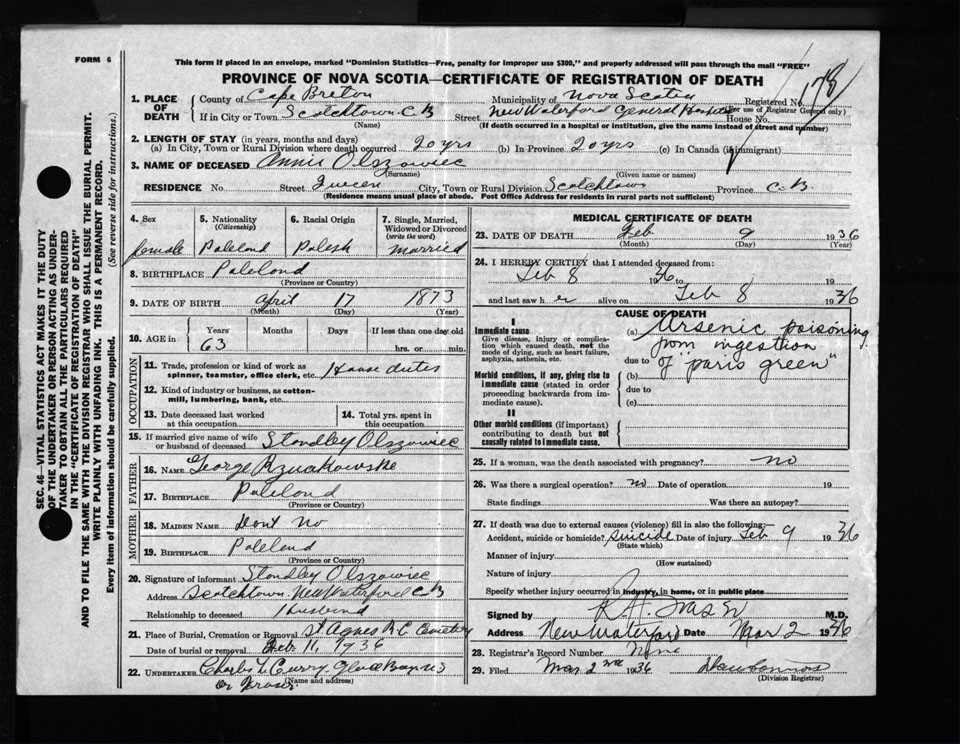 FORM 6
This form if placed in an envelope, marked "Dominion Statistics—Free, penalty for improper use $300," and properly addressed will pass through the mail "FREE"
PROVINCE OF NOVA SCOTIA—CERTIFICATE OF REGISTRATION OF DEATH
178
1. PLACE OF DEATH
County of Cape Breton Municipality of Nova Scotia Registered No.
(For use of Registrar General only)
If in City or Town Scotchtown C.B Street New Waterford General House No.
(Name) (If death occurred in a hospital or institution, give the name instead of street and number)
2. LENGTH OF STAY (in years, months and days)
(a) In City, Town or Rural Division where death occurred 20 yrs (b) In Province 20 yrs (c) In Canada (if immigrant)
3. NAME OF DECEASED Annie Olszowiec
(Surname) (Given name or names)
RESIDENCE No. Street Queen City, Town or Rural Division Scotchtown Province C.B.
(Residence means usual place of abode. Post Office Address for residents in rural parts not sufficient)
4. Sex
female
5. Nationality
(Citizenship)
Paleland
6. Racial Origin
Palesh
7. Single, Married, Widowed or Divorced
(write the word)
Married
8. BIRTHPLACE Paleland
(Province or Country)
9. DATE OF BIRTH April 17 1873
(Month) (Day) (Year)
10. AGE in
Years Months Days If less than one day old
63 hrs. or min.
OCCUPATION
11. Trade, profession or kind of work as spinner, teamster, office clerk, etc. House duties
12. Kind of industry or business, as cotton-mill, lumbering, bank, etc.
13. Date deceased last worked at this occupation
14. Total yrs. spent in this occupation
15. If married give name of wife or husband of deceased Standley Olszowiec
FATHER
16. NAME George
17. BIRTHPLACE Paleland
(Province or Country)
MOTHER
18. MAIDEN NAME Dont No
19. BIRTHPLACE Paleland
(Province or Country)
20. Signature of informant Standley Olszowiec
Address Scotchtown New Waterford C B
Relationship to deceased Husband
21. Place of Burial, Cremation or Removal St Agnes R C Cemetery
Date of burial or removal Feb 11, 1936
22. UNDERTAKER Charles L Curry Glace Bay N S
(Name and address)
MEDICAL CERTIFICATE OF DEATH
23. DATE OF DEATH Feb 9 1936
(Month) (Day) (Year)
24. I HEREBY CERTIFY that I attended deceased from:
Feb 8 1936 to
and last saw h er alive on Feb 8 1936
CAUSE OF DEATH
I
Immediate cause
Give disease, injury or complication which caused death, not the mode of dying, such as heart failure, asphyxia, asthenia, etc.
Morbid conditions, if any, giving rise to immediate cause (stated in order proceeding backwards from immediate cause).
II
Other morbid conditions (if important) contributing to death but not causally related to immediate cause.
(a) Arsenic poisoning
from ingestion
due to of "paris green"
(b)
due to
(c)
25. If a woman, was the death associated with pregnancy? no
26. Was there a surgical operation? no Date of operation 19
State findings Was there an autopsy?
27. If death was due to external causes (violence) fill in also the following:—
Accident, suicide or homicide? Suicide Date of injury Feb 9 1936
(State which)
Manner of injury
(How sustained)
Nature of injury
Specify whether injury occurred in industry, in home, or in public place
Signed by M.D.
Address New Waterford Date Mar 2 1936
28. Registrar's Record Number
29. Filed Mar 2nd 1936
(Division Registrar)
SEC. 46—VITAL STATISTICS ACT MAKES IT THE DUTY
OF THE UNDERTAKER OR PERSON ACTING AS UNDER-
TAKER TO OBTAIN ALL THE PARTICULARS REQUIRED
IN THE "CERTIFICATE OF REGISTRATION OF DEATH"
AND TO FILE THE SAME WITH THE DIVISION REGISTRAR WHO SHALL ISSUE THE BURIAL PERMIT.
WRITE PLAINLY WITH UNFADING INK. THIS IS A PERMANENT RECORD.
Every item of information should be carefully supplied. (See reverse side for instructions.)